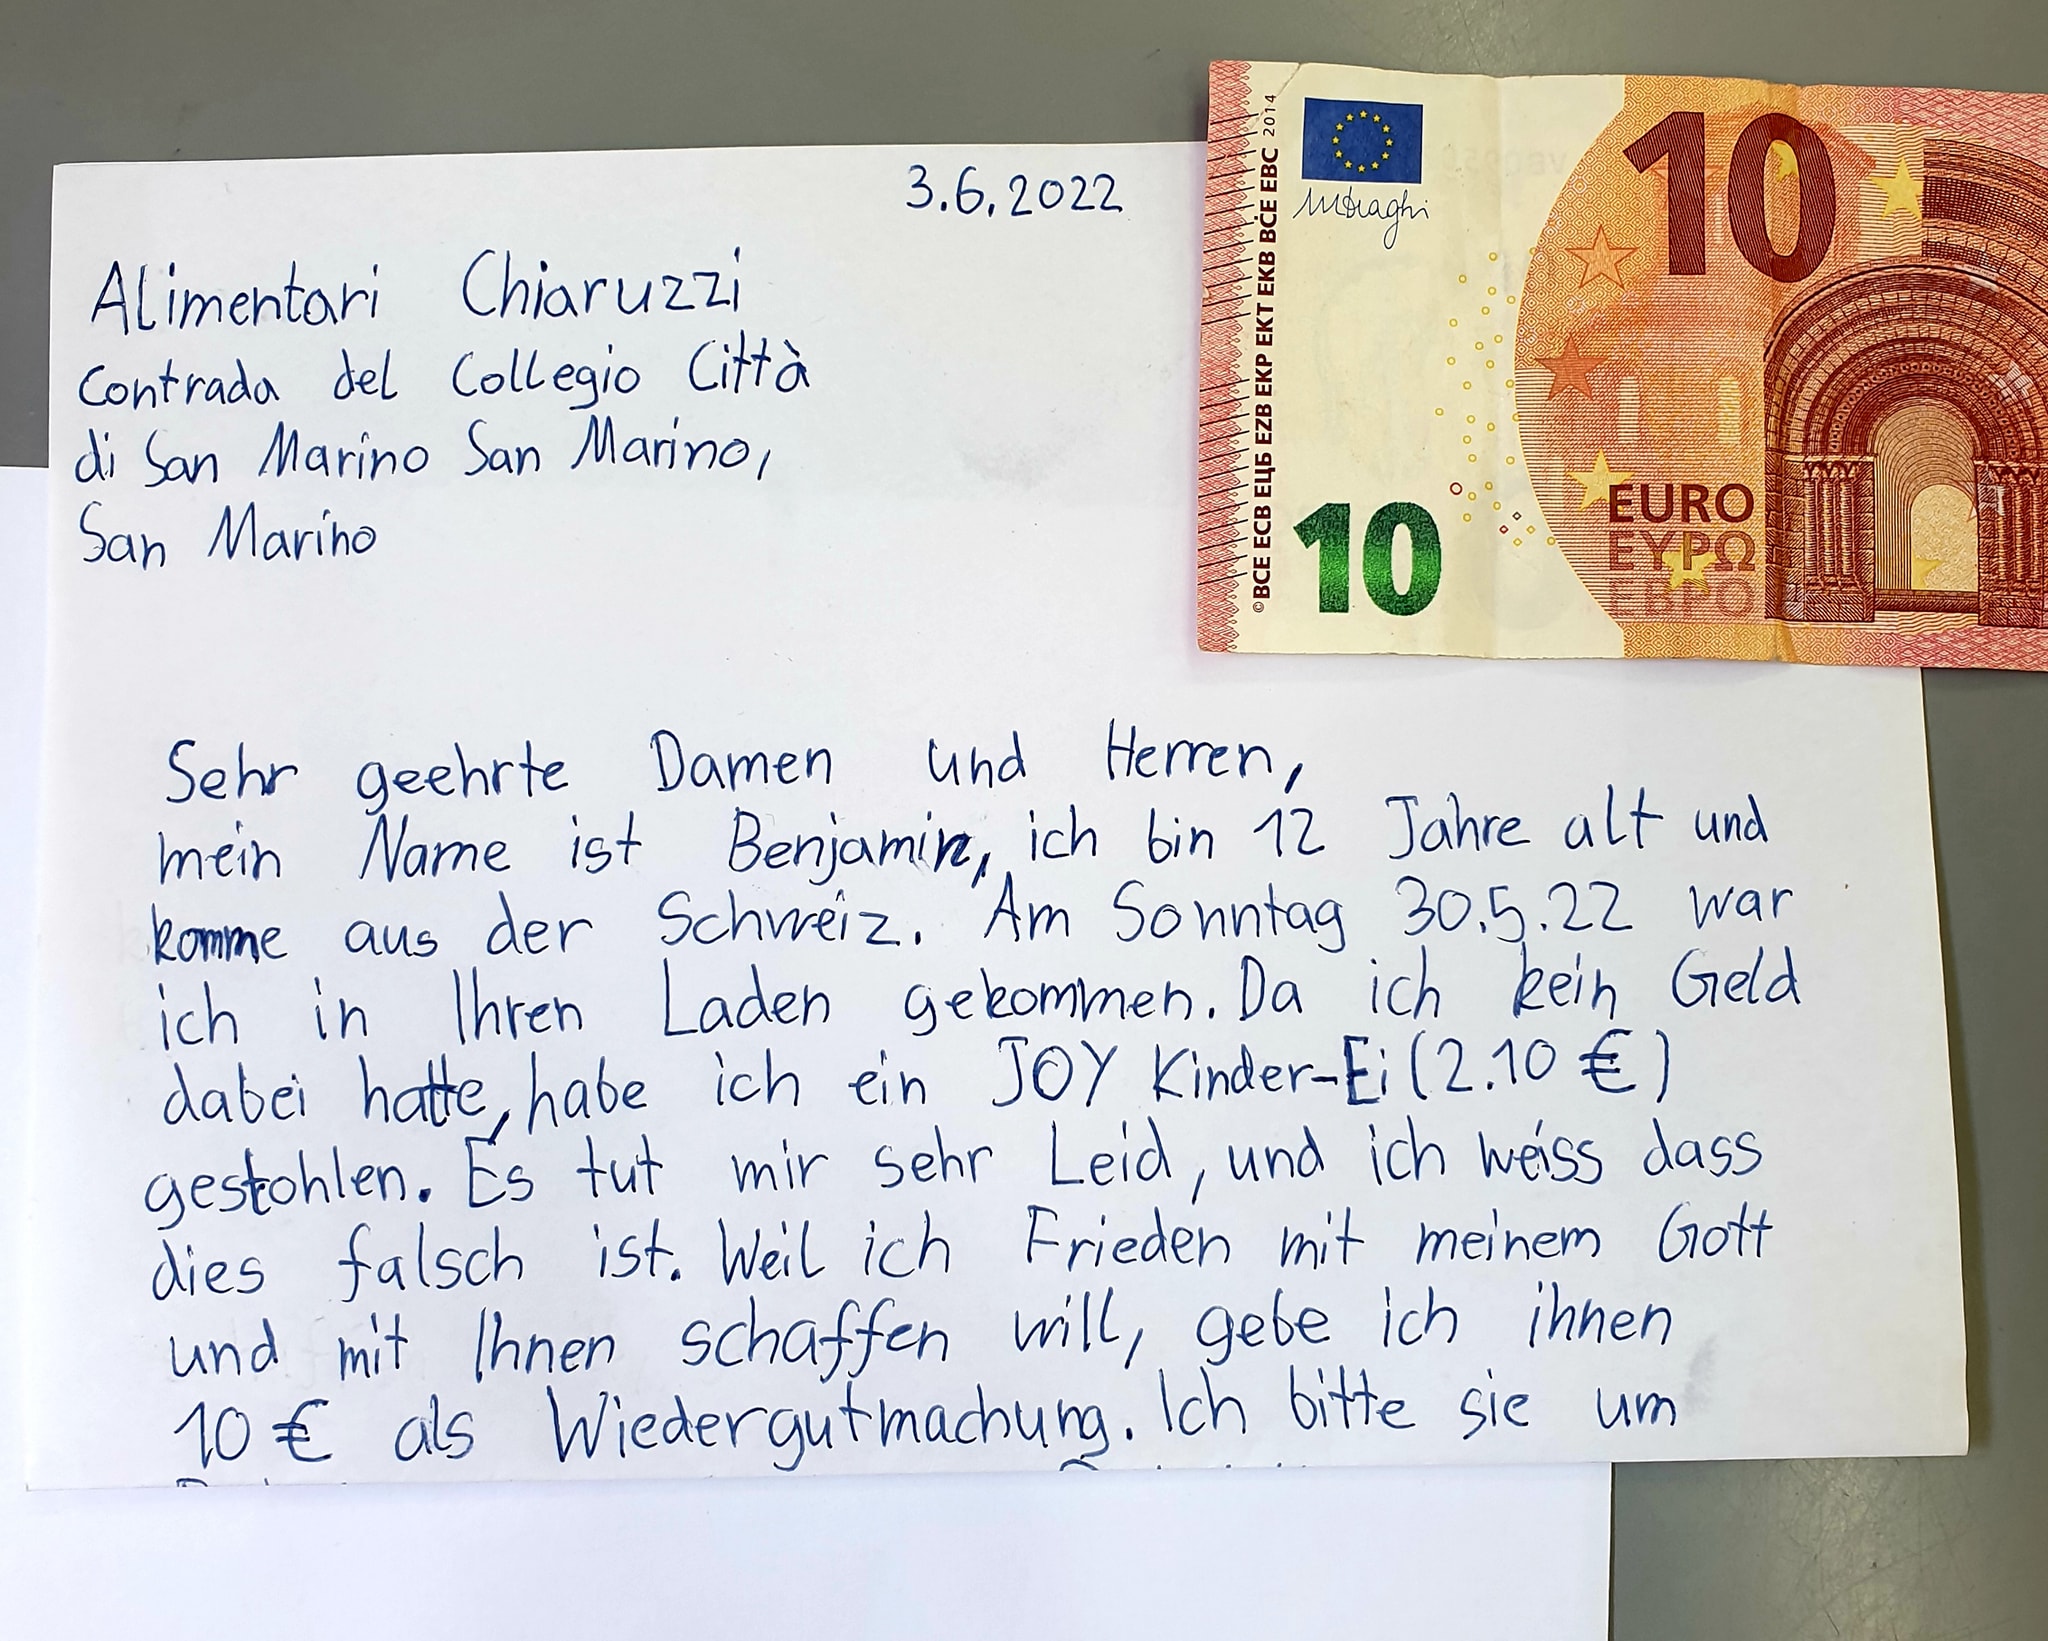 3.6.2022
Alimentari Chiaruzzi
Contrada del Collegio Città
di San Marino San Marino,
San Marino
Sehr geehrte Damen und Herren,
mein Name ist Benjamin, ich bin 12 Jahre alt und
komme aus der Schweiz. Am Sonntag 30.5.22 war
ich in Ihren Laden gekommen. Da ich kein Geld
dabei hatte, habe ich ein JOY Kinder-Ei (2.10 €)
gestohlen. Es tut mir sehr Leid, und ich weiss dass
dies falsch ist. Weil ich Frieden mit meinem Gott
und mit Ihnen schaffen will, gebe ich ihnen
10 € als Wiedergutmachung. Ich bitte sie um
©BCE ECB ЕЦБ EZB EKP EKT EKB BĊE EBC 2014
MDraghi
10
10
EURO
ΕΥΡΩ
ЕВРО